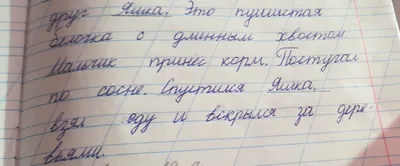 друг Яшка. Это пушистая
белочка с длинным хвостом
Мальчик принёс корм. Постучал
по сосне. Спустился Яшка,
взял еду и вскрылся за дере-
вьями.